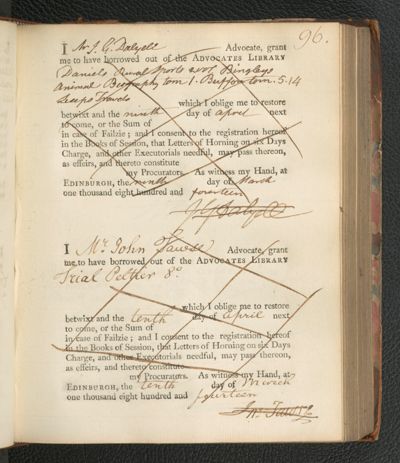 96.
I Mr J. G. Dalyell Advocate, grant
me to have borrowed out of the ADVOCATES LIBRARY
Daniels Rural Sports 2 vol Bingleys
Animal Biography tom. 1. Buffon tom. 5.14
Travels which I oblige me to restore
betwixt and the ninth day of April next
to come, or the Sum of
in case of Failzie; and I consent to the registration hereof
in the Books of Session, that Letters of Horning on six Days
Charge, and other Executorials needful, may pass thereon,
as effeirs, and thereto constitute
my Procurators. As witness my Hand, at
EDINBURGH, the ninth day of March
one thousand eight hundred and fourteen
J G Dalyell
I Mr. John Advocate, grant
me to have borrowed out of the ADVOCATES LIBRARY
Trial 8o
which I oblige me to restore
betwixt and the tenth day of April next
to come, or the Sum of
in case of Failzie; and I consent to the registration hereof
in the Books of Session, that Letters of Horning on six Days
Charge, and other Executorials needful, may pass thereon,
as effeirs, and thereto constitute
my Procurators. As witness my Hand, at
EDINBURGH, the tenth day of March
one thousand eight hundred and fourteen